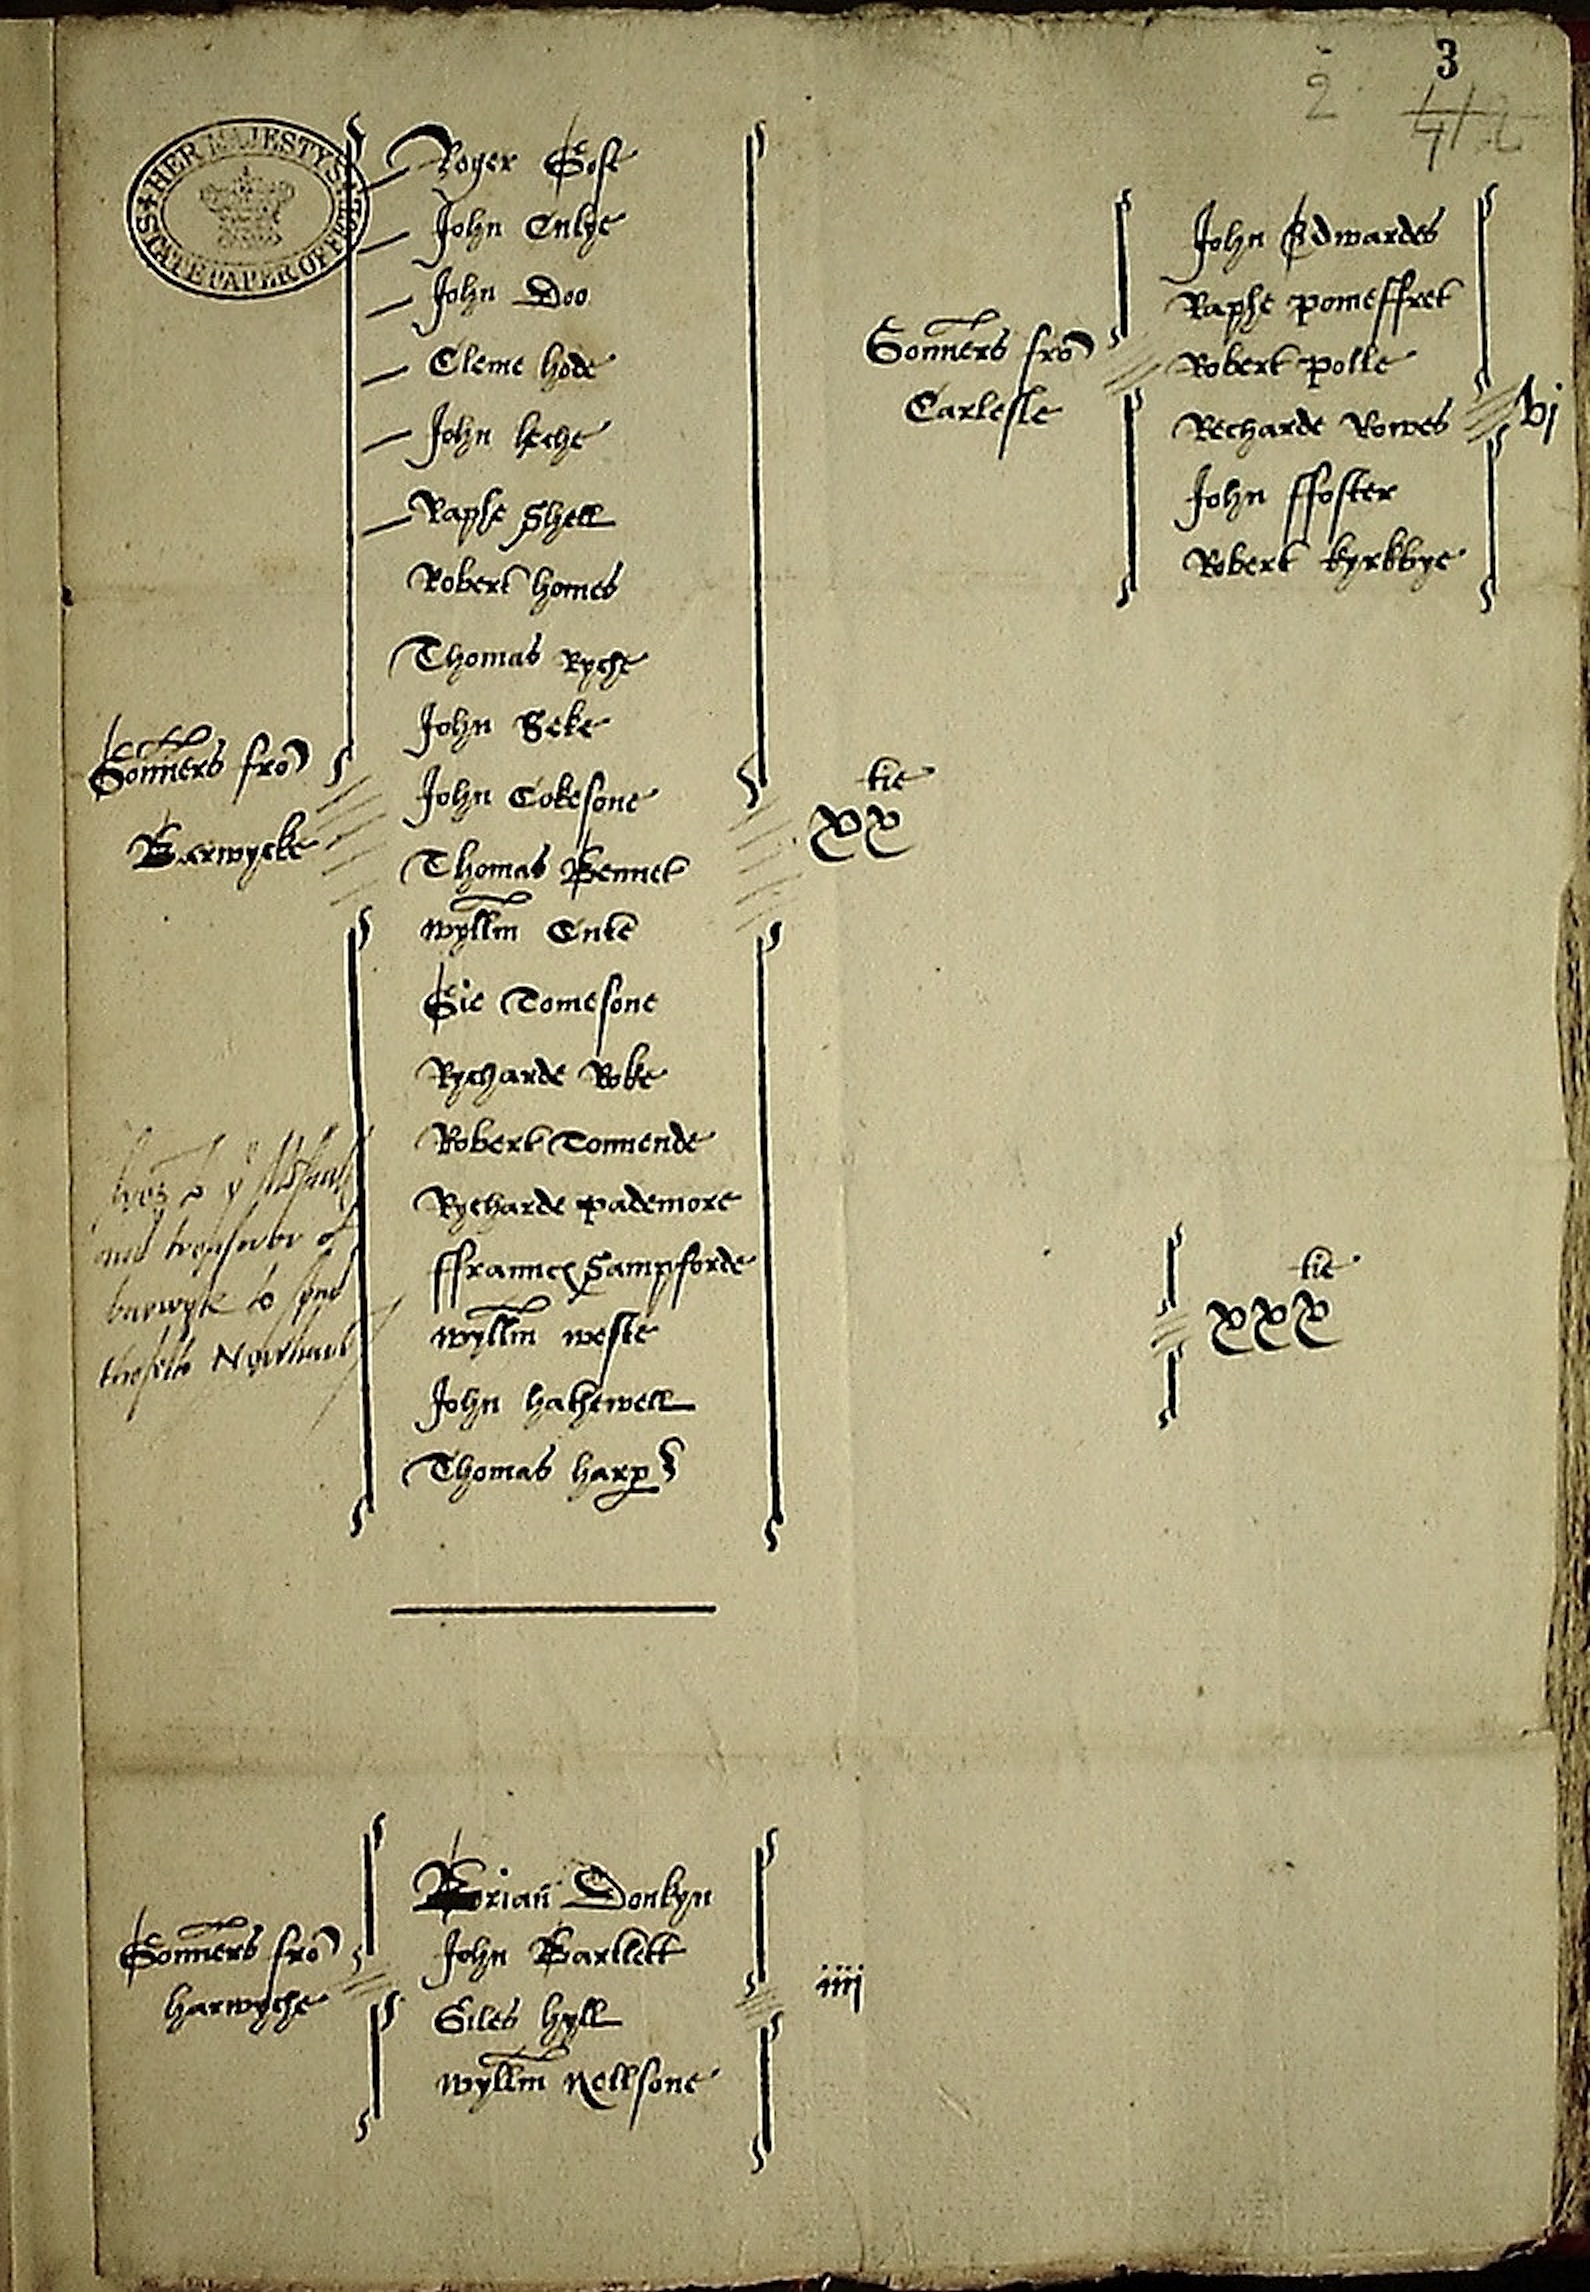 3
2
HER MAJESTY'S STATE PAPER OFFICE
Roger Gost
John Enlye
John Doo
Cleme hode
John leche
Raphe Shell
Robert homes
Thomas Ryche
John Geke
John Cokesone
Thomas Bennet
Wyllm Ente
Gie Tomesone
Rycharde Roke
Robert Tonnende
Rycharde pademore
ffrannces Sampforde
wyllm weste
John hathewell
Thomas harp
Gonners fro
Barwycke
xx tie
and tresurer of
barwyk to
Gonners fro
Carlesle
John Edwardes
Raphe pomeffret
Robert polle
Recharde Rowes
John ffoster
Robert kyrkbye
vj
xxx tie
Gonners fro
harwyche
Brian Donkyn
John Bartlett
Giles hyll
wyllm Nellsone
iiij